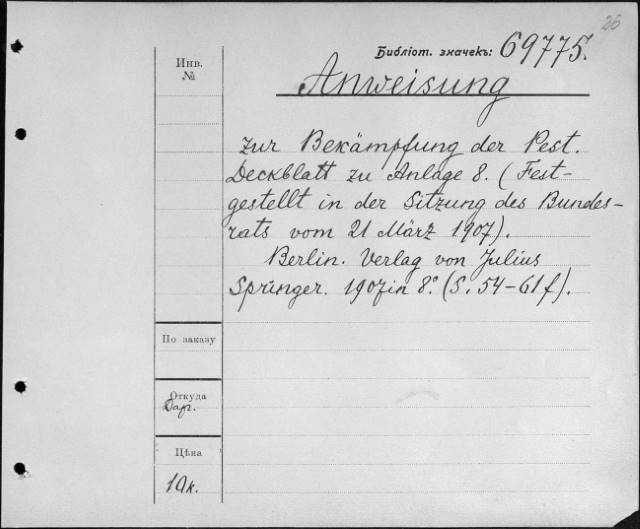 26
Библіот. значекъ: 69775.
Инв.
№
Anweisung
zur Bekämpfung der Pest.
Deckblatt zu Anlage 8. (Fest-
gestellt in der Sitzung des Bundes-
rats vom 21 März 1907).
Berlin. Verlag von Julius
Springer. 1907 in 8°. (S. 54-61f).
По заказу
Откуда
Вар.
Цѣна
10к.